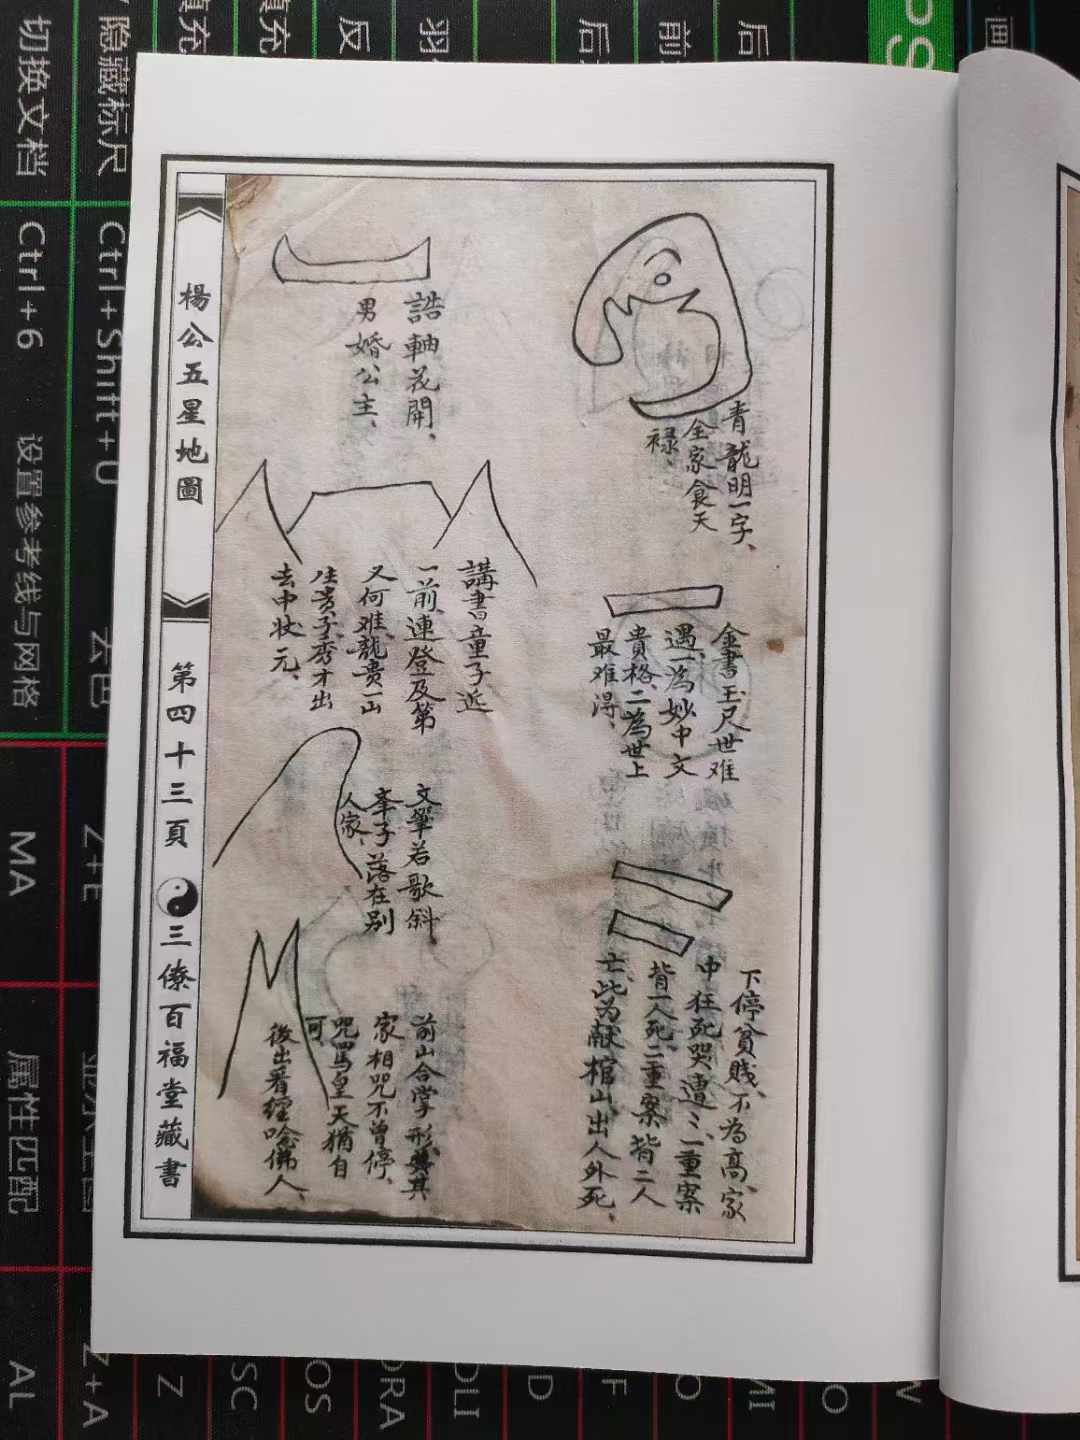 青龍明一字、
全家食天
禄、
金書玉尺世难
遇、一為妙中文
貴格、二為世上
最难得、
下停贫贱、不為高、家
中狂死哭遭〻、一重案
背一人死、二重案背二人
亡、此為献棺山、出人外死、
誥軸花開、
男婚公主、
講書童子近
一前、連登及第
又何难、龍贵一山
生贵子、秀才出
去中状元、
文筆若歌斜
峯子落在别
人家、
前山合掌形、其
家相咒不曾停、
咒罵皇天猶自
可
後出看經唸佛人、
楊公五星地圖
第四十三頁
三僚百福堂藏書
切换文档 Ctrl+6
隐藏标尺 Ctrl+Shift+U
设置参考线与网格
MA
Z+E
属性匹配
AL
Z+A
Z
SC
OS
DRA
DLI
D
F
O
MI
O
W
填充
填充
反
后
前
后
画
PS